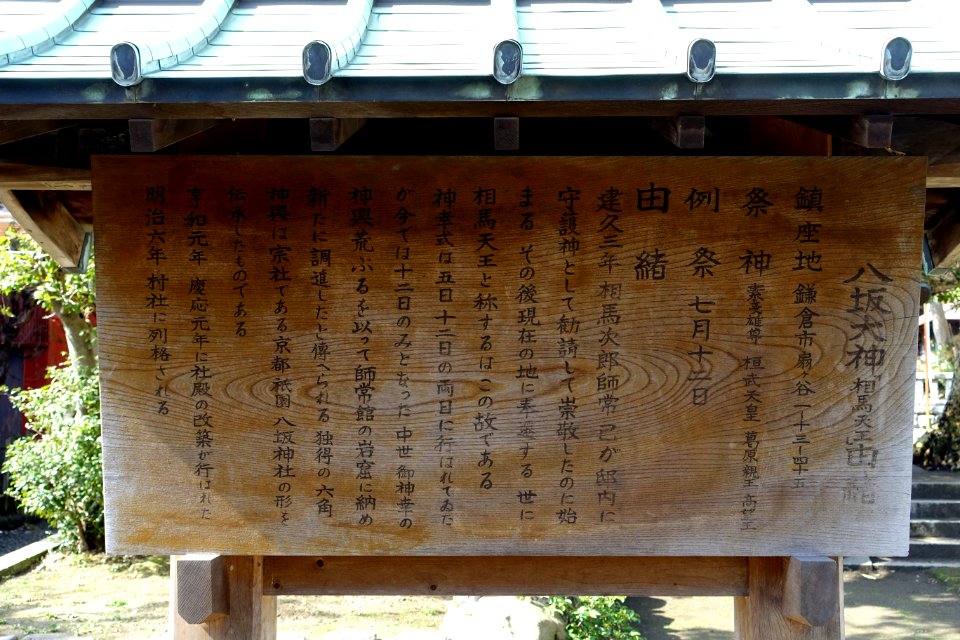 八坂大神 相馬天王 由緒
鎮座地 鎌倉市扇ヶ谷一ー十三ー四十五
祭神 素戔雄尊 桓武天皇 葛原親王 高望王
例祭 七月十二日
由緒
建久三年 相馬次郎師常 己が邸内に
守護神として勧請して崇敬したのに始
まる その後現在の地に奉遷する 世に
相馬天王と称するはこの故である
神幸式は五日十二日の両日に行はれてゐた
が今では十二日のみとなった 中世 御神幸の
神輿荒ぶるを以って師常館の岩窟に納め
新たに調進したと傳へられる 独得の六角
神輿は宗社である京都祇園八坂神社の形を
伝承したものである
享和元年 慶応元年に社殿の改築が行はれた
明治六年 村社に列格される